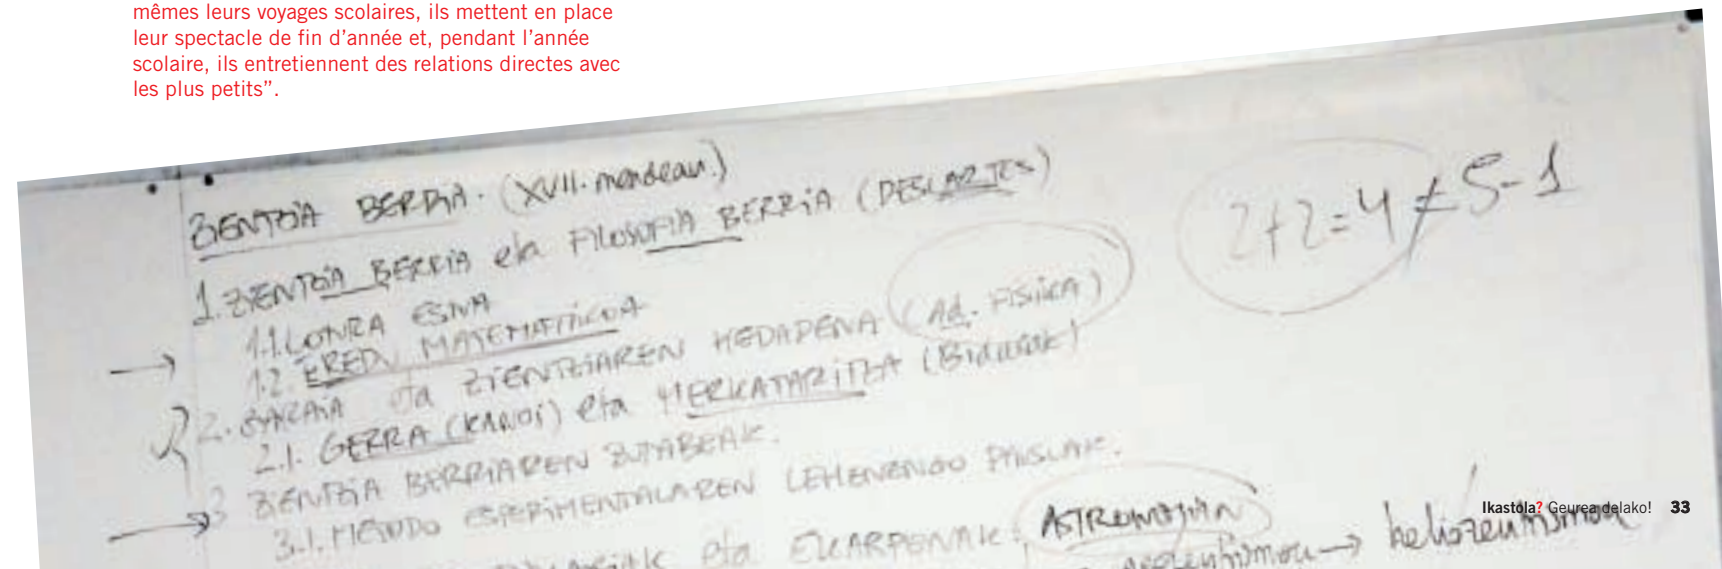 mêmes leurs voyages scolaires, ils mettent en place
leur spectacle de fin d’année et, pendant l’année
scolaire, ils entretiennent des relations directes avec
les plus petits”.
ZIENTZIA BERRIA. (XVII. mendean.)
1. ZIENTZIA BERRIA eta FILOSOFIA BERRIA (DESCARTES)
2+2=4≠5-1
1.1.
1.2. EREDU MATEMATIKOA
2. eta ZIENTZIAREN HEDAPENA (Ad. FISIKA)
2.1. GERRA (KANOI) eta MERKATARITZA (Bidaiak)
3 ZIENTZIA BERRIAREN ZUTABEAK.
3.1. METODO ESPERIMENTALAREN LEHENENGO PAUSUAK.
eta EKARPENAK: ASTRONOMIAN
→ heliozentrismoa
Ikastola? Geurea delako! 33